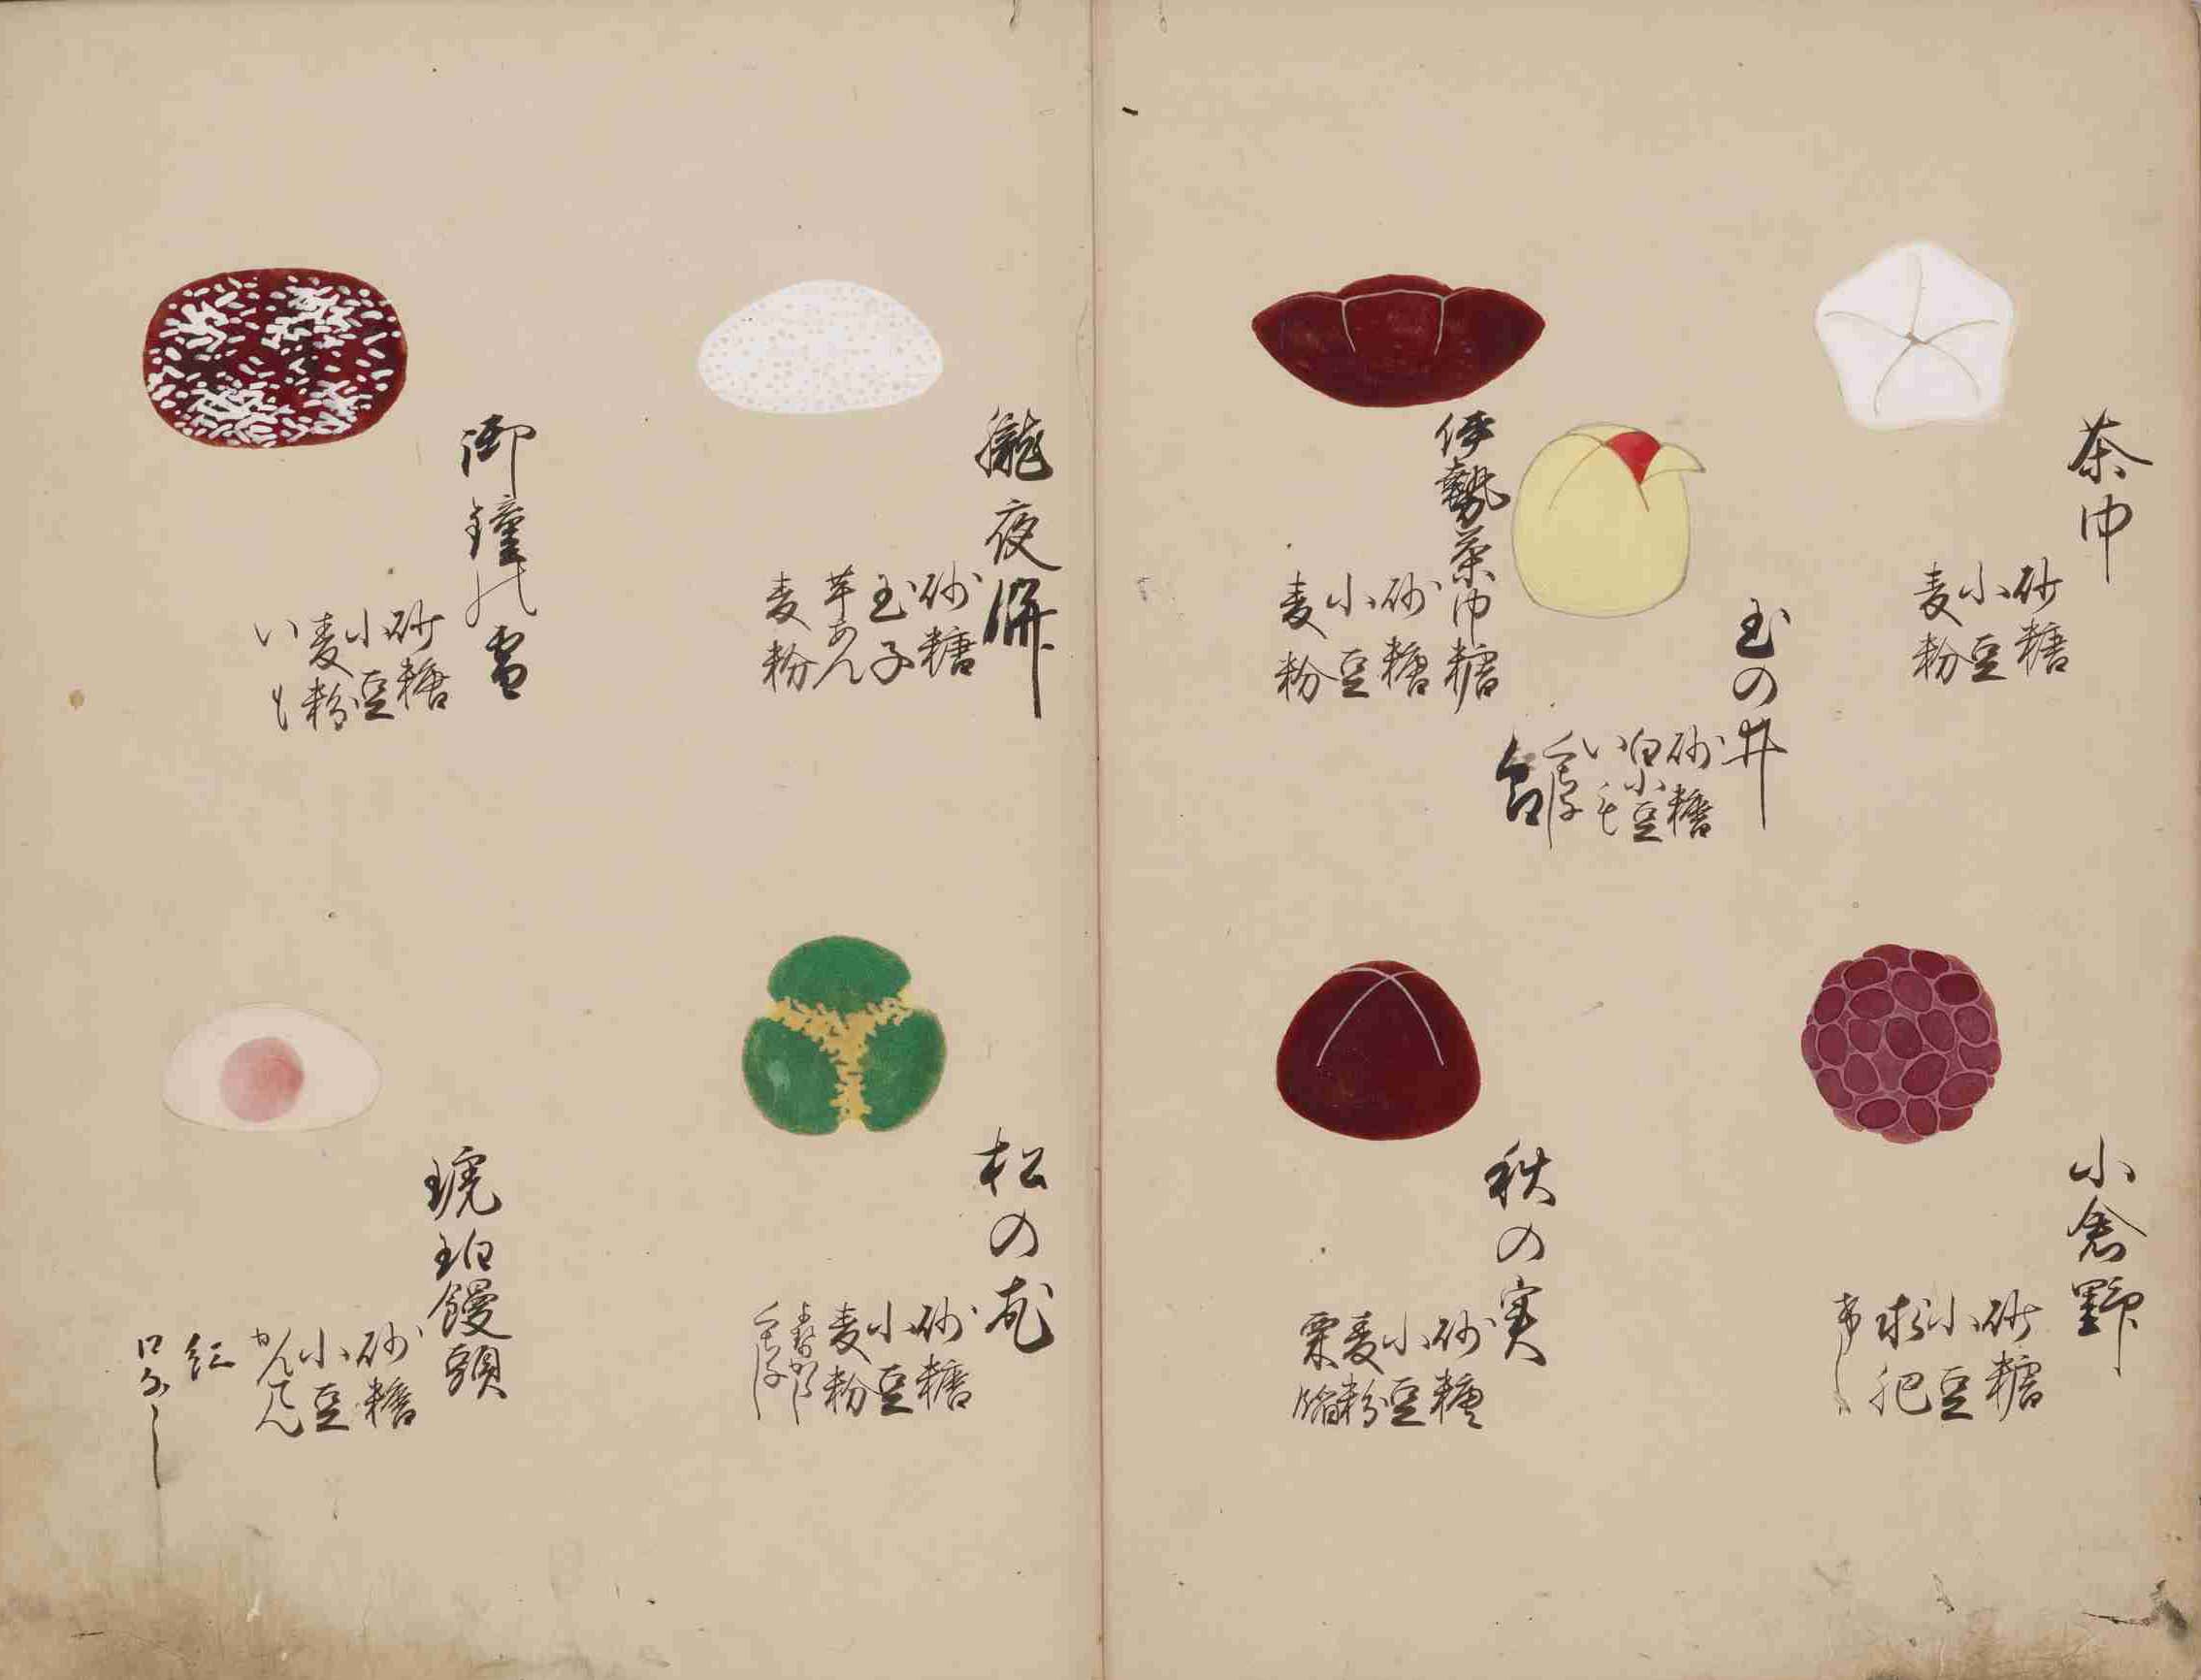 茶巾
砂糖
小豆
麦粉
玉の井
砂糖
白小豆
いも
伊勢茶巾
糖
砂糖
小豆
麦粉
小倉野
砂糖
小豆
秋の実
砂糖
小豆
麦粉
栗餡
朧夜餅
砂糖
玉子
芋あん
麦粉
御鐘の雪
砂糖
小豆
麦粉
いも
松の花
砂糖
小豆
麦粉
琥珀饅頭
砂糖
小豆
かんてん
紅
口なし